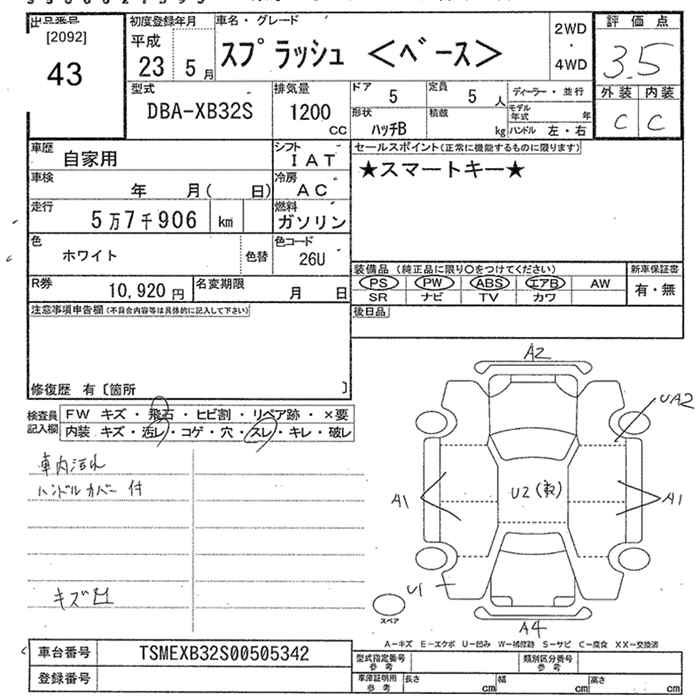 出品番号 初度登録年月 車名・グレード 2WD ・ 4WD 評価点
[2092] 平成 スプラッシュ <ベース> 3.5
43 23 5月 外装 内装
型式 排気量 ドア 定員 ディーラー・並行 C C
DBA-XB32S 1200 CC 5 5人 モデル年式 年
形状 積載 ハッチB kg ハンドル 左・右
車歴 自家用 シフト IAT セールスポイント(正常に機能するものに限ります)
車検 年 月( 日) 冷房 AC ★スマートキー★
走行 5万7千906 km 燃料 ガソリン
色 ホワイト 色替 色コード 26U
装備品 (純正品に限り○をつけてください) 新車保証書
R券 10,920円 名変期限 月 日 PS PW ABS エアB AW 有・無
SR ナビ TV カワ
注意事項申告欄(不具合内容等は具体的に記入して下さい) 後日品
修復歴 有〔箇所 〕
検査員記入欄 FW キズ・飛石・ヒビ割・リペア跡・×要
内装 キズ・汚レ・コゲ・穴・スレ・キレ・破レ
車内汚れ
ハンドルカバー付
A2
UA2
A1 U2 A1
キズ凹
U1
スペア
A4
A-キズ E-エクボ U-凹み W-補修跡 S-サビ C-腐食 XX-交換済
車台番号 TSMEXB32S00505342 型式指定番号 参考 類別区分番号 参考
登録番号 車庫証明用 参考 長さ cm 幅 cm 高さ cm